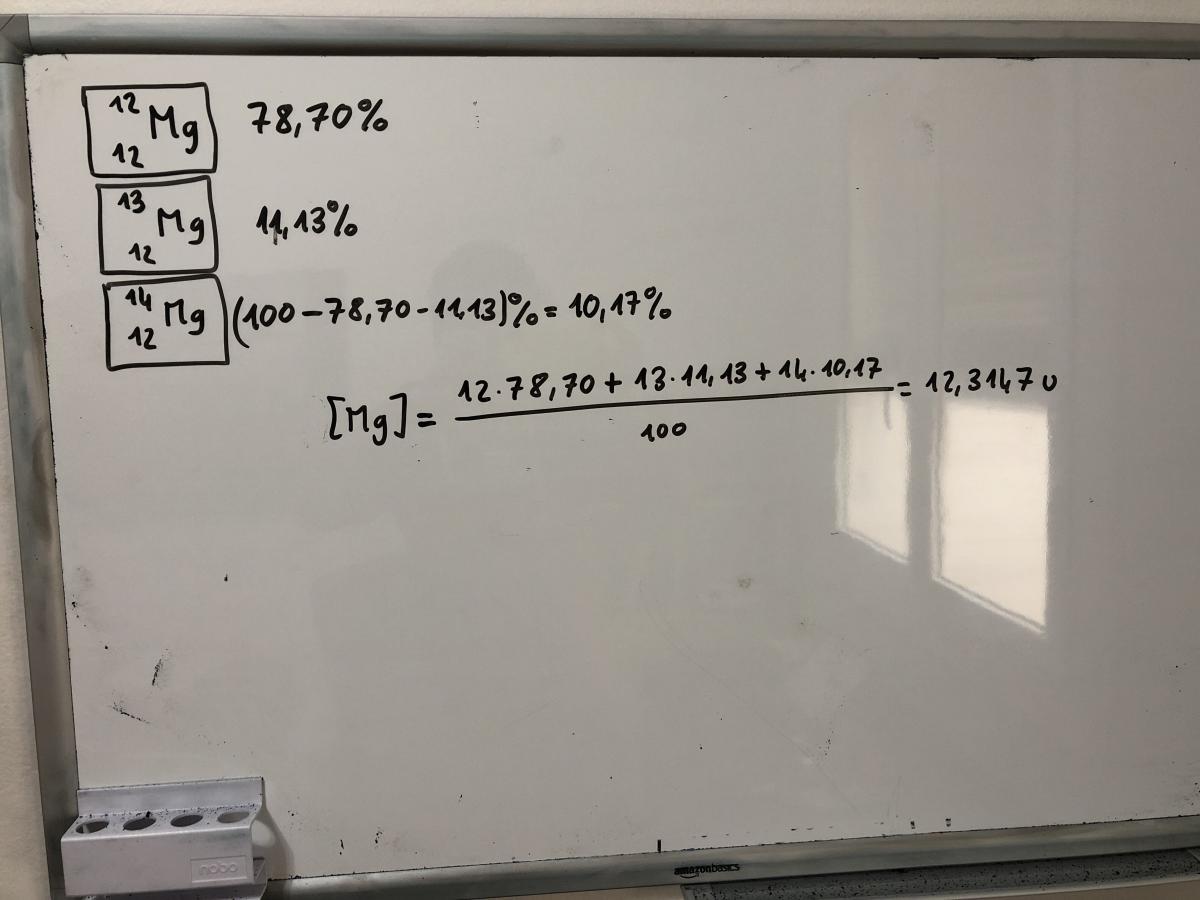 12 Mg 12 78,70%
13 Mg 12 11,13%
14 Mg 12 (100-78,70-11,13)% = 10,17%
[Mg] = 12·78,70 + 13·11,13 + 14·10,17 / 100 = 12,3147 u
nobo
amazonbasics